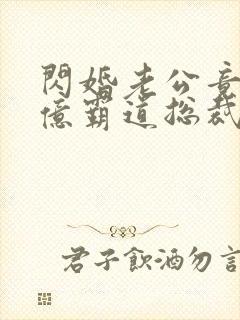 閃婚老公竟
億霸道總裁
君子飲酒勿言